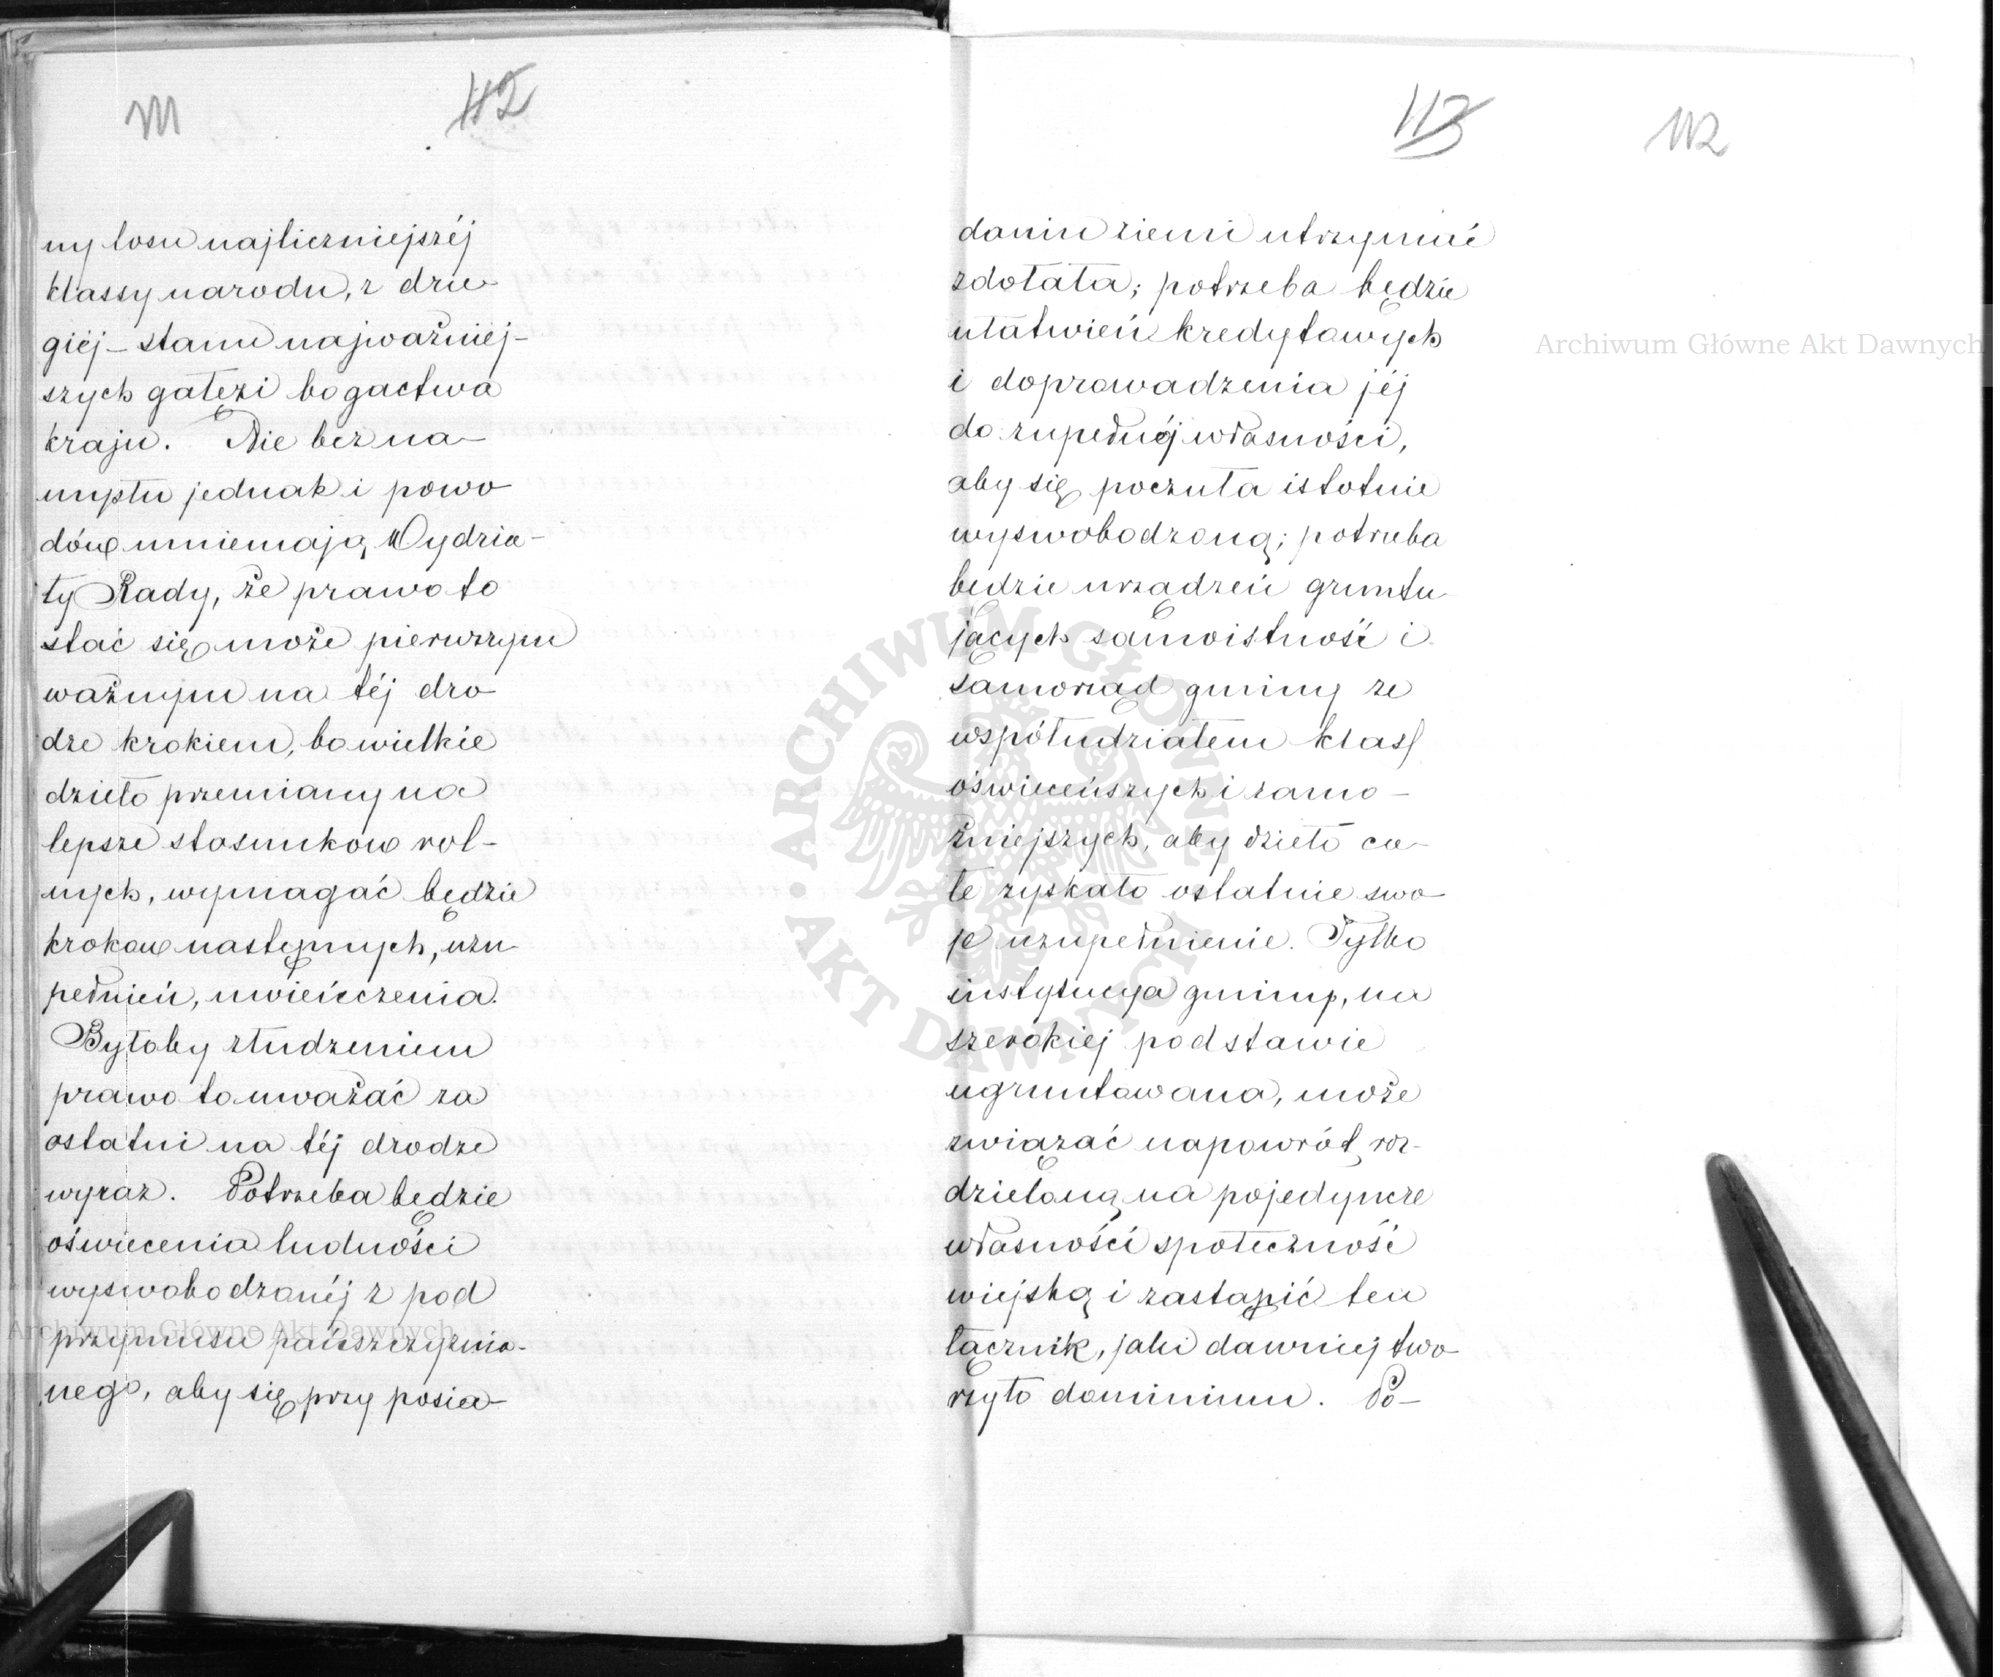 111
112
ny losu najliczniejszéj
klassy narodu, z dru-
giéj – stanu najważniej-
szych gałęzi bogactwa
kraju. Nie bez na-
mysłu jednak i powo
dów mniemają Wydzia-
ły Rady, że prawo to
stać się może pierwszym
ważnym na téj dro
dze krokiem, bo wielkie
dzieło przemiany na
lepsze stosunków rol-
nych, wymagać będzie
kroków następnych, uzu
pełnień, uwieńczenia.
Byłoby złudzeniem
prawo to uważać za
ostatni na téj drodze
wyraz. Potrzeba będzie
oświecenia ludności
wyswobodzonéj z pod
przymusu pańszczyźnia-
nego, aby się przy posia-
113
112
daniu ziemi utrzymać
zdołała; potrzeba będzie
ułatwień kredytowych
i doprowadzenia jéj
do zupełnéj własności,
aby się poczuła istotnie
wyswobodzoną; potrzeba
będzie urządzeń gruntu
jących samoistność i
samorząd gminy ze
współudziałem klass
oświeceńszych i zamo-
żniejszych, aby dzieło ca-
łe zyskało ostatnie swo
je uzupełnienie. Tylko
instytucya gminy, na
szerokiej podstawie
ugruntowana, może
związać napowrót roz-
dzieloną na pojedyncze
własności społeczność
wiejską i zastąpić ten
łącznik, jaki dawniej two
rzyło dominium. Po-
Archiwum Główne Akt Dawnych
Archiwum Główne Akt Dawnych
ARCHIWUM GŁÓWNE AKT DAWNYCH